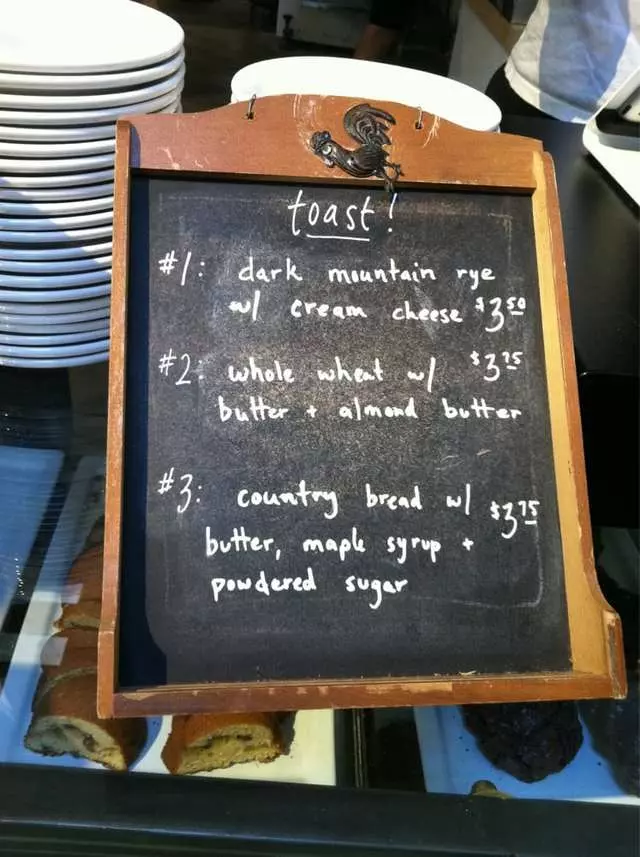 toast!
#1: dark mountain rye
w/ cream cheese $3.50
#2: whole wheat w/ $3.75
butter + almond butter
#3: country bread w/ $3.75
butter, maple syrup +
powdered sugar